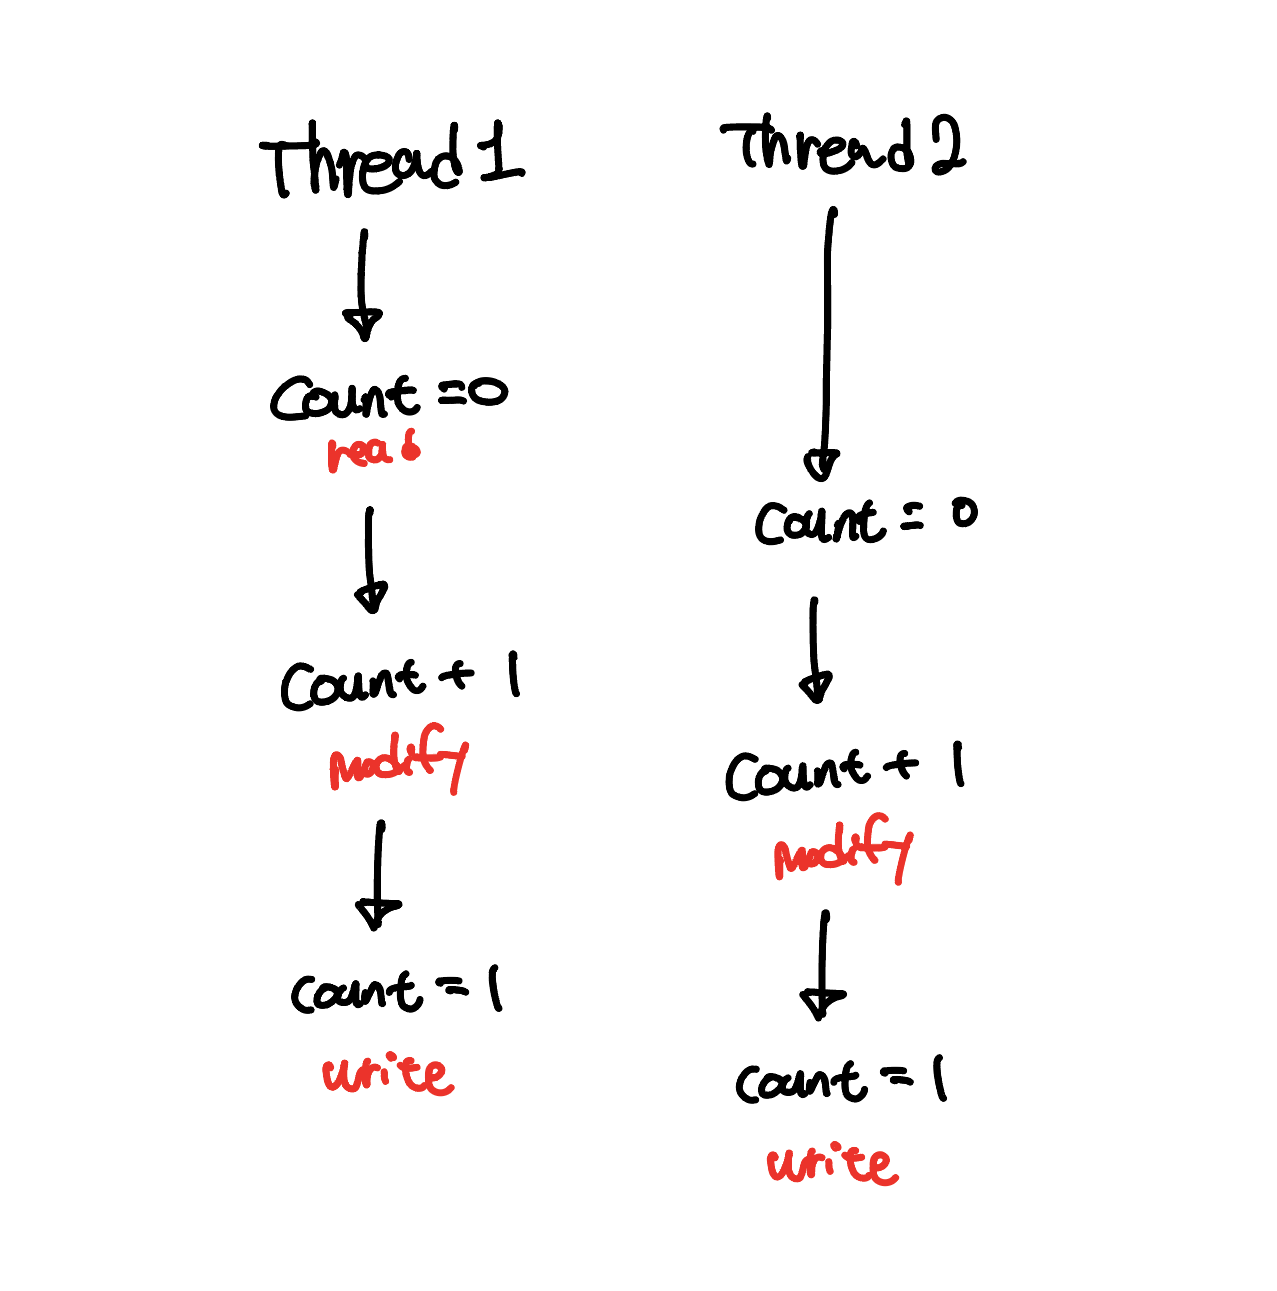 Thread 1
Count = 0
read
Count + 1
modify
count = 1
write
Thread 2
Count = 0
Count + 1
modify
count = 1
write